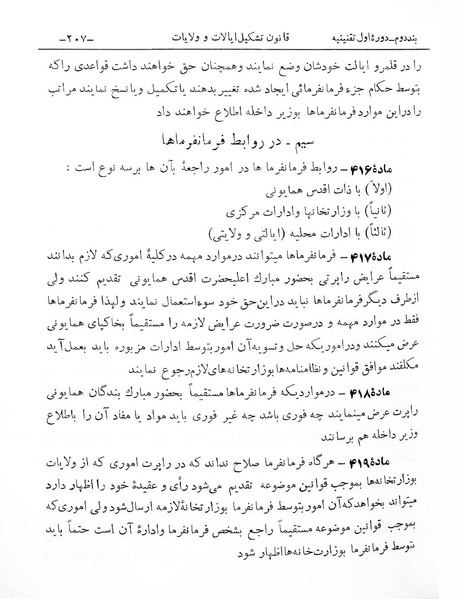 بنددوم-دورۀ اول تقنینیه قانون تشکیل ایالات و ولایات -۲۰۷-
را در قلمرو ایالت خودشان وضع نمایند وهمچنان حق خواهند داشت قواعدی را که
بتوسط حکام جزء فرمانفرمائی ایجاد شده تغییر بدهند یا تکمیل ویانسخ نمایند مراتب
را دراین موارد فرمانفرماها بوزیر داخله اطلاع خواهند داد
سیم - در روابط فرمانفرماها
مادۀ ۴۱۶ - روابط فرمانفرما ها در امور راجعۀ بآن ها برسه نوع است :
(اولاً) با ذات اقدس همایونی
(ثانیاً) با وزارتخانها وادارات مرکزی
(ثالثاً) با ادارات محلیه (ایالتی و ولایتی)
مادۀ ۴۱۷ - فرمانفرماها میتوانند درموارد مهمه درکلیۀ اموری که لازم بدانند
مستقیماً عرایض راپرتی بحضور مبارك اعلیحضرت اقدس همایونی تقدیم کنند ولی
ازطرف دیگر فرمانفرماها نباید دراین حق خود سوءاستعمال نمایند و لهذا فرمانفرماها
فقط در موارد مهمه و درصورت ضرورت عرایض لازمه را مستقیماً بخاکپای همایونی
عرض میکنند ودراموریکه حل وتسویه آن امور بتوسط ادارات مزبوره باید بعمل آید
مکلفند موافق قوانین و نظامنامه ها بوزارتخانه های لازم رجوع نمایند
مادۀ ۴۱۸ - درمواردیکه فرمانفرماها مستقیماً بحضور مبارك بندگان همایونی
راپرت عرض مینمایند چه فوری باشد چه غیر فوری باید مواد یا مفاد آن را باطلاع
وزیر داخله هم برسانند
مادۀ ۴۱۹ - هرگاه فرمانفرما صلاح نداند که در راپرت اموری که از ولایات
بوزارتخانه ها بموجب قوانین موضوعه تقدیم می شود رأی و عقیدۀ خود را اظهار دارد
میتواند بخواهد که آن امور بتوسط فرمانفرما بوزارتخانۀ لازمه ارسال شود ولی اموری که
بموجب قوانین موضوعه مستقیماً راجع بشخص فرمانفرما وادارۀ آن است حتماً باید
بتوسط فرمانفرما بوزارت خانه ها اظهار شود